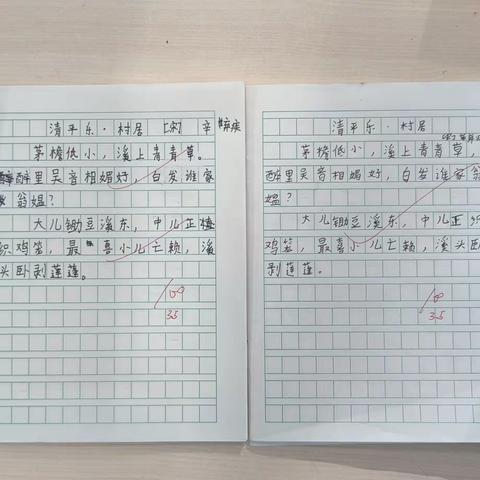 清平乐·村居 [宋] 辛弃疾
茅檐低小，溪上青青草。
醉里吴音相媚好，白发谁家
翁媪？
大儿锄豆溪东，中儿正
织鸡笼，最喜小儿亡赖，溪
头卧剥莲蓬。
100
3.5
清平乐·村居
茅檐低小，溪上青青草，
醉里吴音相媚好，白发谁家翁
媪？
大儿锄豆溪东，中儿正织
鸡笼，最喜小儿亡赖，溪头卧
剥莲蓬。
100
3.5